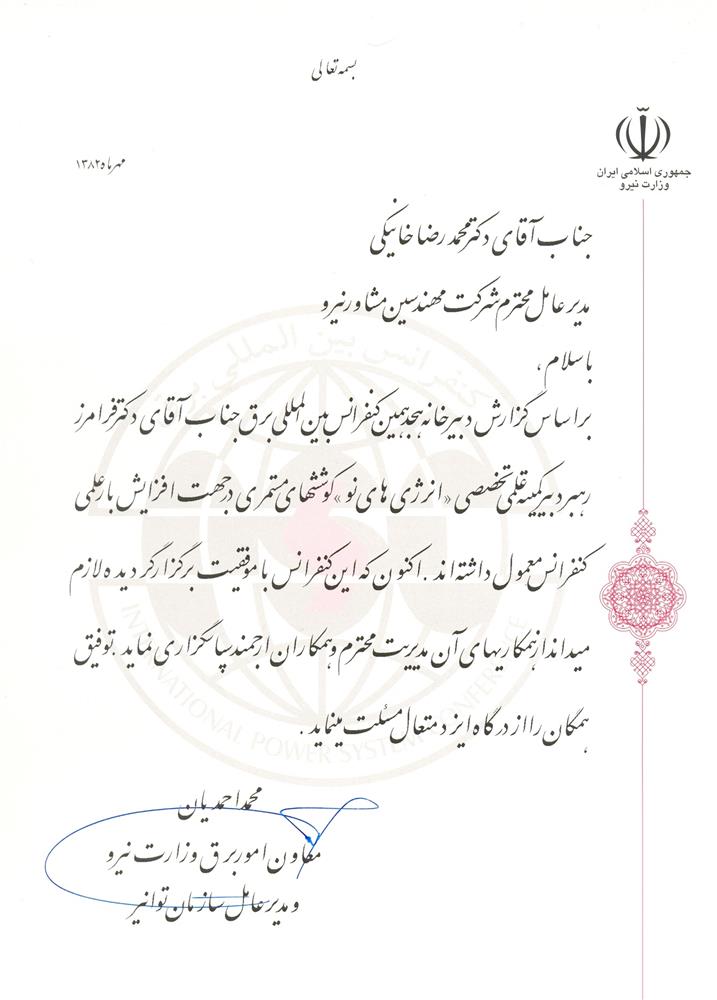 بسمه تعالی
جمهوری اسلامی ایران
وزارت نیرو
مهرماه ۱۳۸۲
جناب آقای دکتر محمد رضا خانیکی
مدیر عامل محترم شرکت مهندسین مشاور نیرو
با سلام ،
بر اساس گزارش دبیرخانه هجدهمین کنفرانس بین المللی برق جناب آقای دکتر فرامرز
رهبر دبیر کمیته علمی تخصصی «انرژی های نو» کوششهای مستمری در جهت افزایش بار علمی
کنفرانس معمول داشته اند . اکنون که این کنفرانس با موفقیت برگزار گردیده لازم
میداند از همکاریهای آن مدیریت محترم و همکاران ارجمند سپاسگزاری نماید . توفیق
همگان را از درگاه ایزد متعال مسئلت مینماید .
محمد احمدیان
معاون امور برق وزارت نیرو
و مدیر عامل سازمان توانیر
کنفرانس بین المللی برق
INTERNATIONAL POWER SYSTEM CONFERENCE